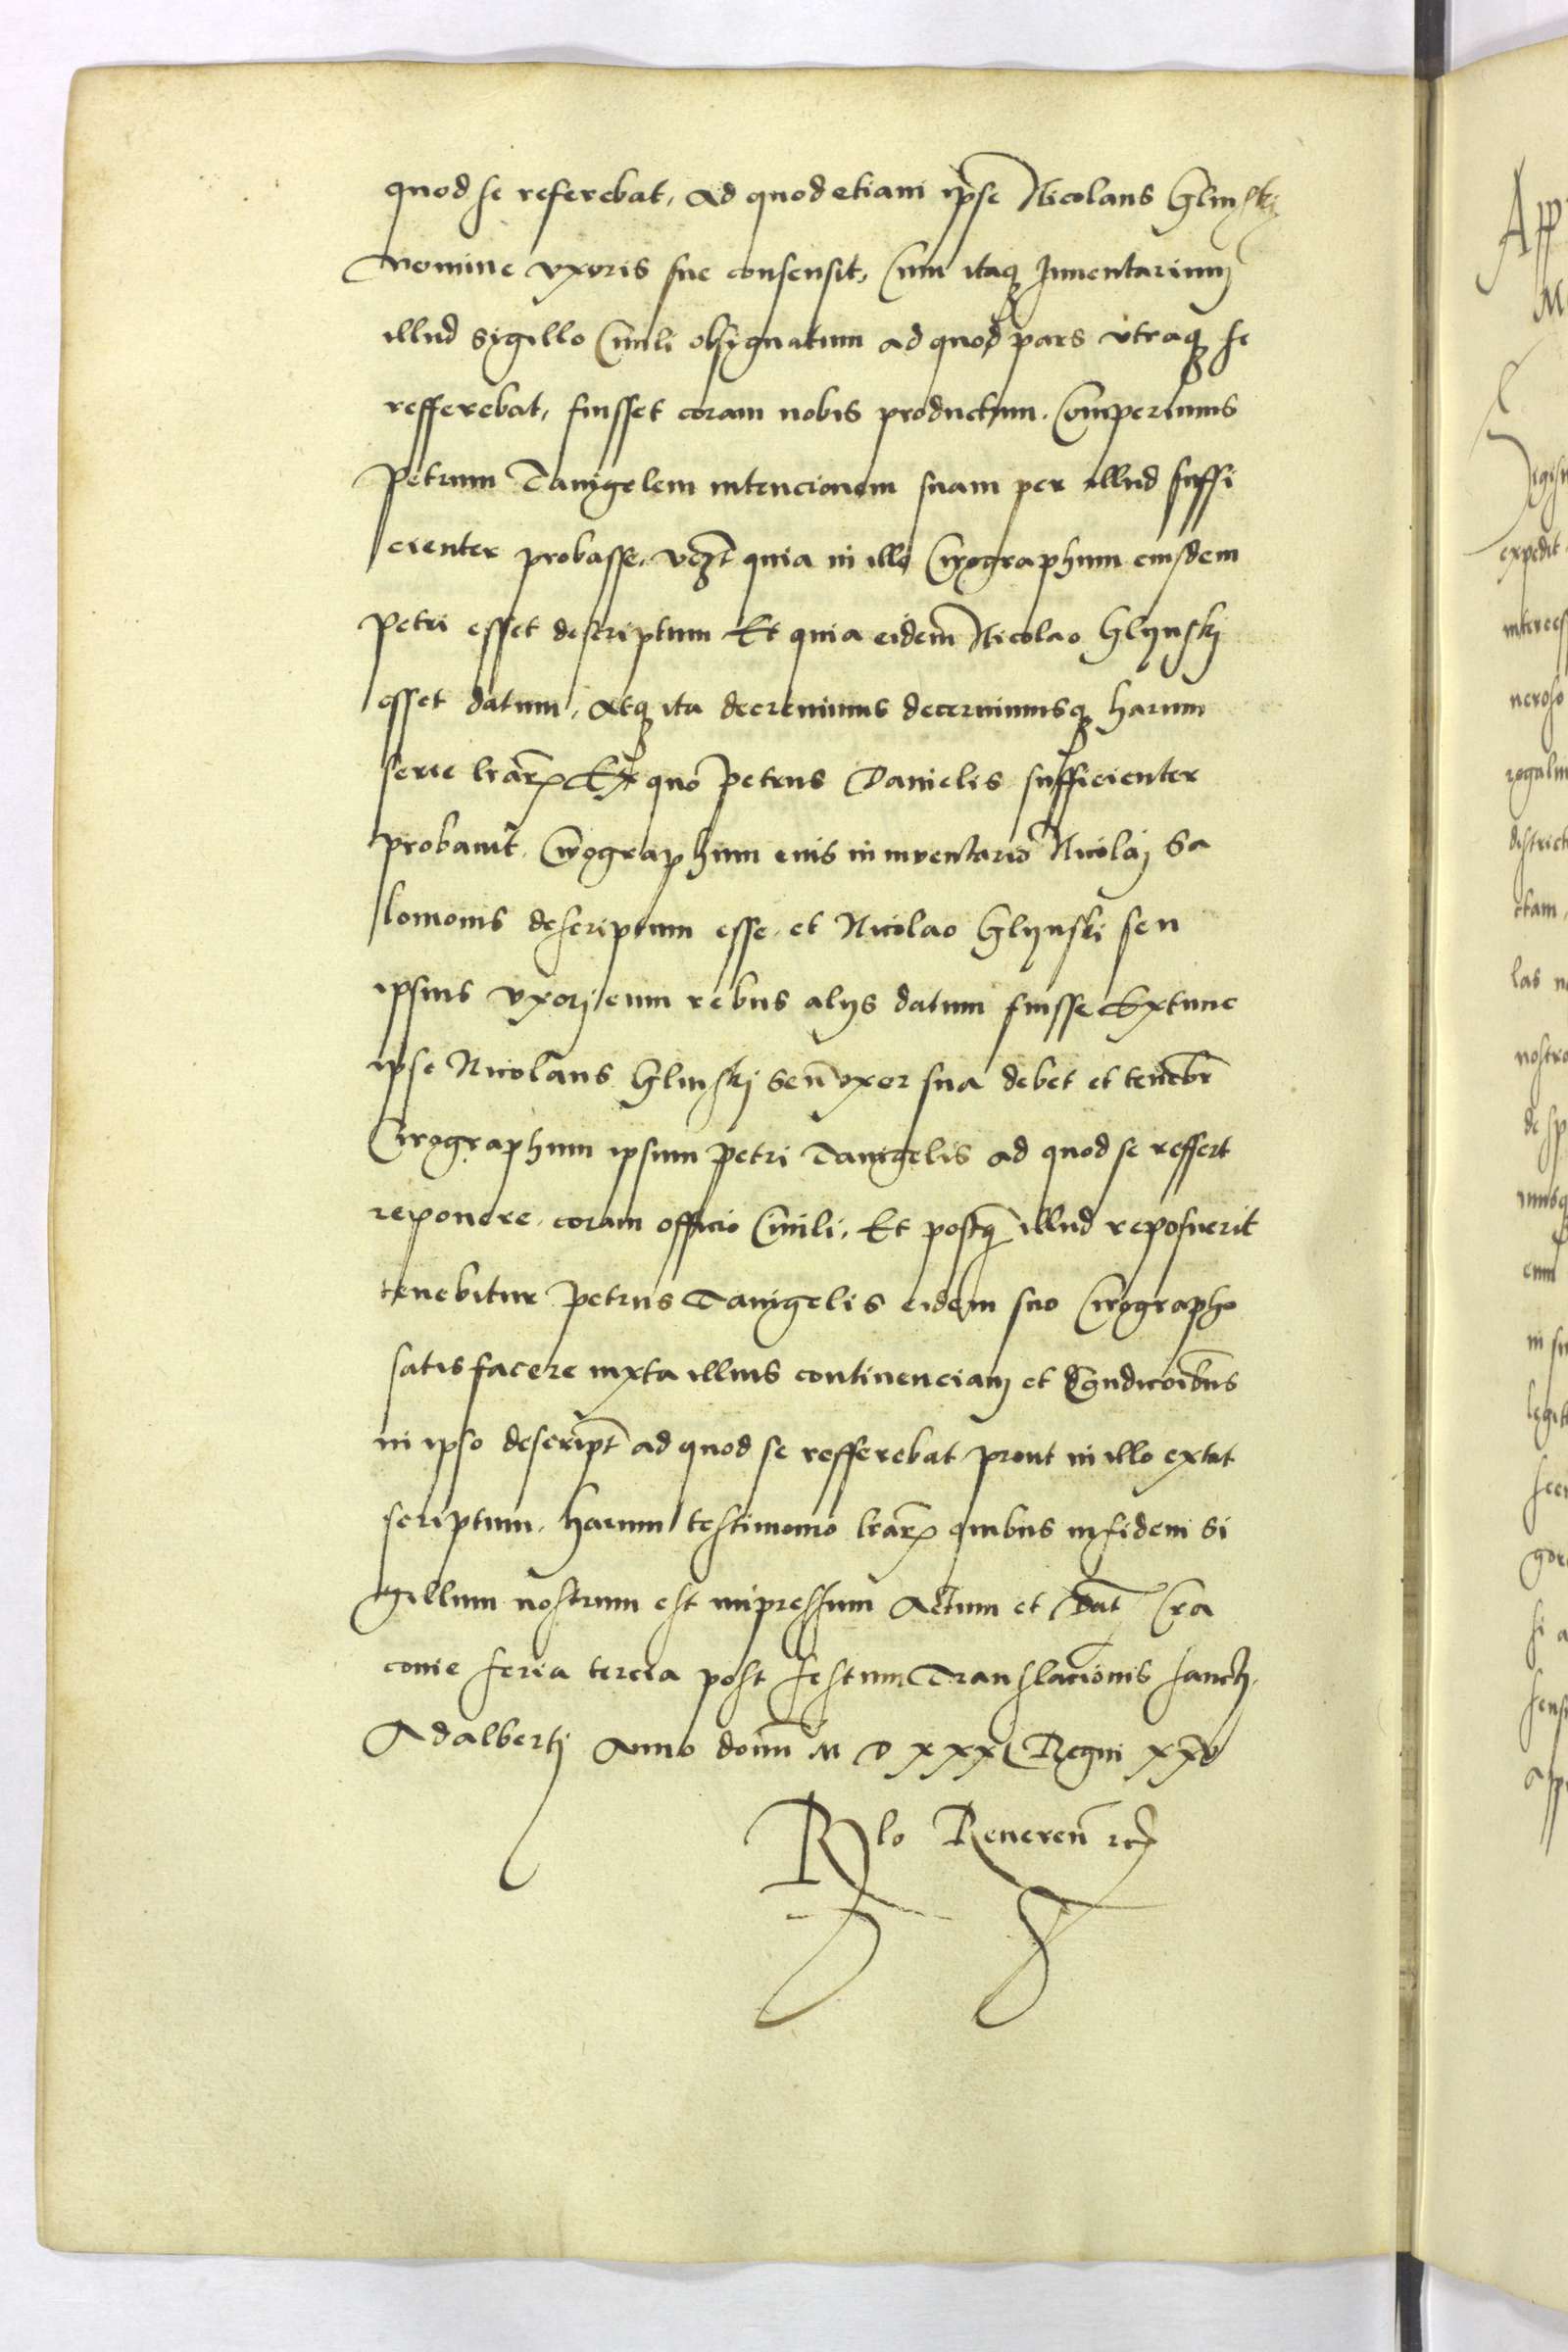 quod se referebat, ad quod etiam ipse Nicolaus Glinskj
nomine vxoris sue consensit, Cum itaq Inuentarium
illud sigillo Ciuili obsignatum ad quod pars vtraq se
refferebat, fuisset coram nobis productum. Comperimus
Petrum Danigelem intencionem suam per illud suffi
cienter probasse, vczt quia in illo Cirographum eiusdem
Petri esset descriptum Et quia eidem Nicolao Glijnskj
esset datum, atq ita decreuimus decernimusq harum
serie lrarꝝ Ex quo Petrus Danielis sufficienter
probauit. Cirographum eius in inventario Nicolaj Sa
lomonis descriptum esse, et Nicolao Glijnski seu
ipsius vxorj cum rebus alijs datum fuisse Extunc
ipse Nicolaus Glinskj seu vxor sua debet et tenebr
Cirographum ipsum Petri Danigelis ad quod se reffert
reponere coram officio Ciuili, Et postq illud reposuerit
tenebitur Petrus Danigelis eidem suo Cirographo
satisfacere iuxta illius continenciam et Condicoibus
in ipso descript ad quod se refferebat prout in illo extat
scriptum. harum testimonio lrarꝝ quibus in fidem Si
gillum nostrum est impressum Actum et Dat Cra
couie feria tercia post festum Translacionis sanctj
Adalbertj Anno domi M D XXXI Regni XXV
Rlo Reueren etc